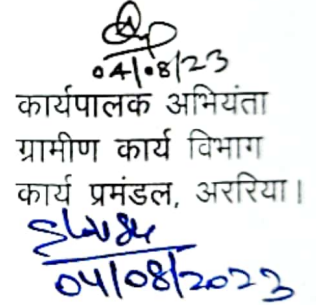 04/08/23
कार्यपालक अभियंता
ग्रामीण कार्य विभाग
कार्य प्रमंडल, अररिया।
04/08/2023